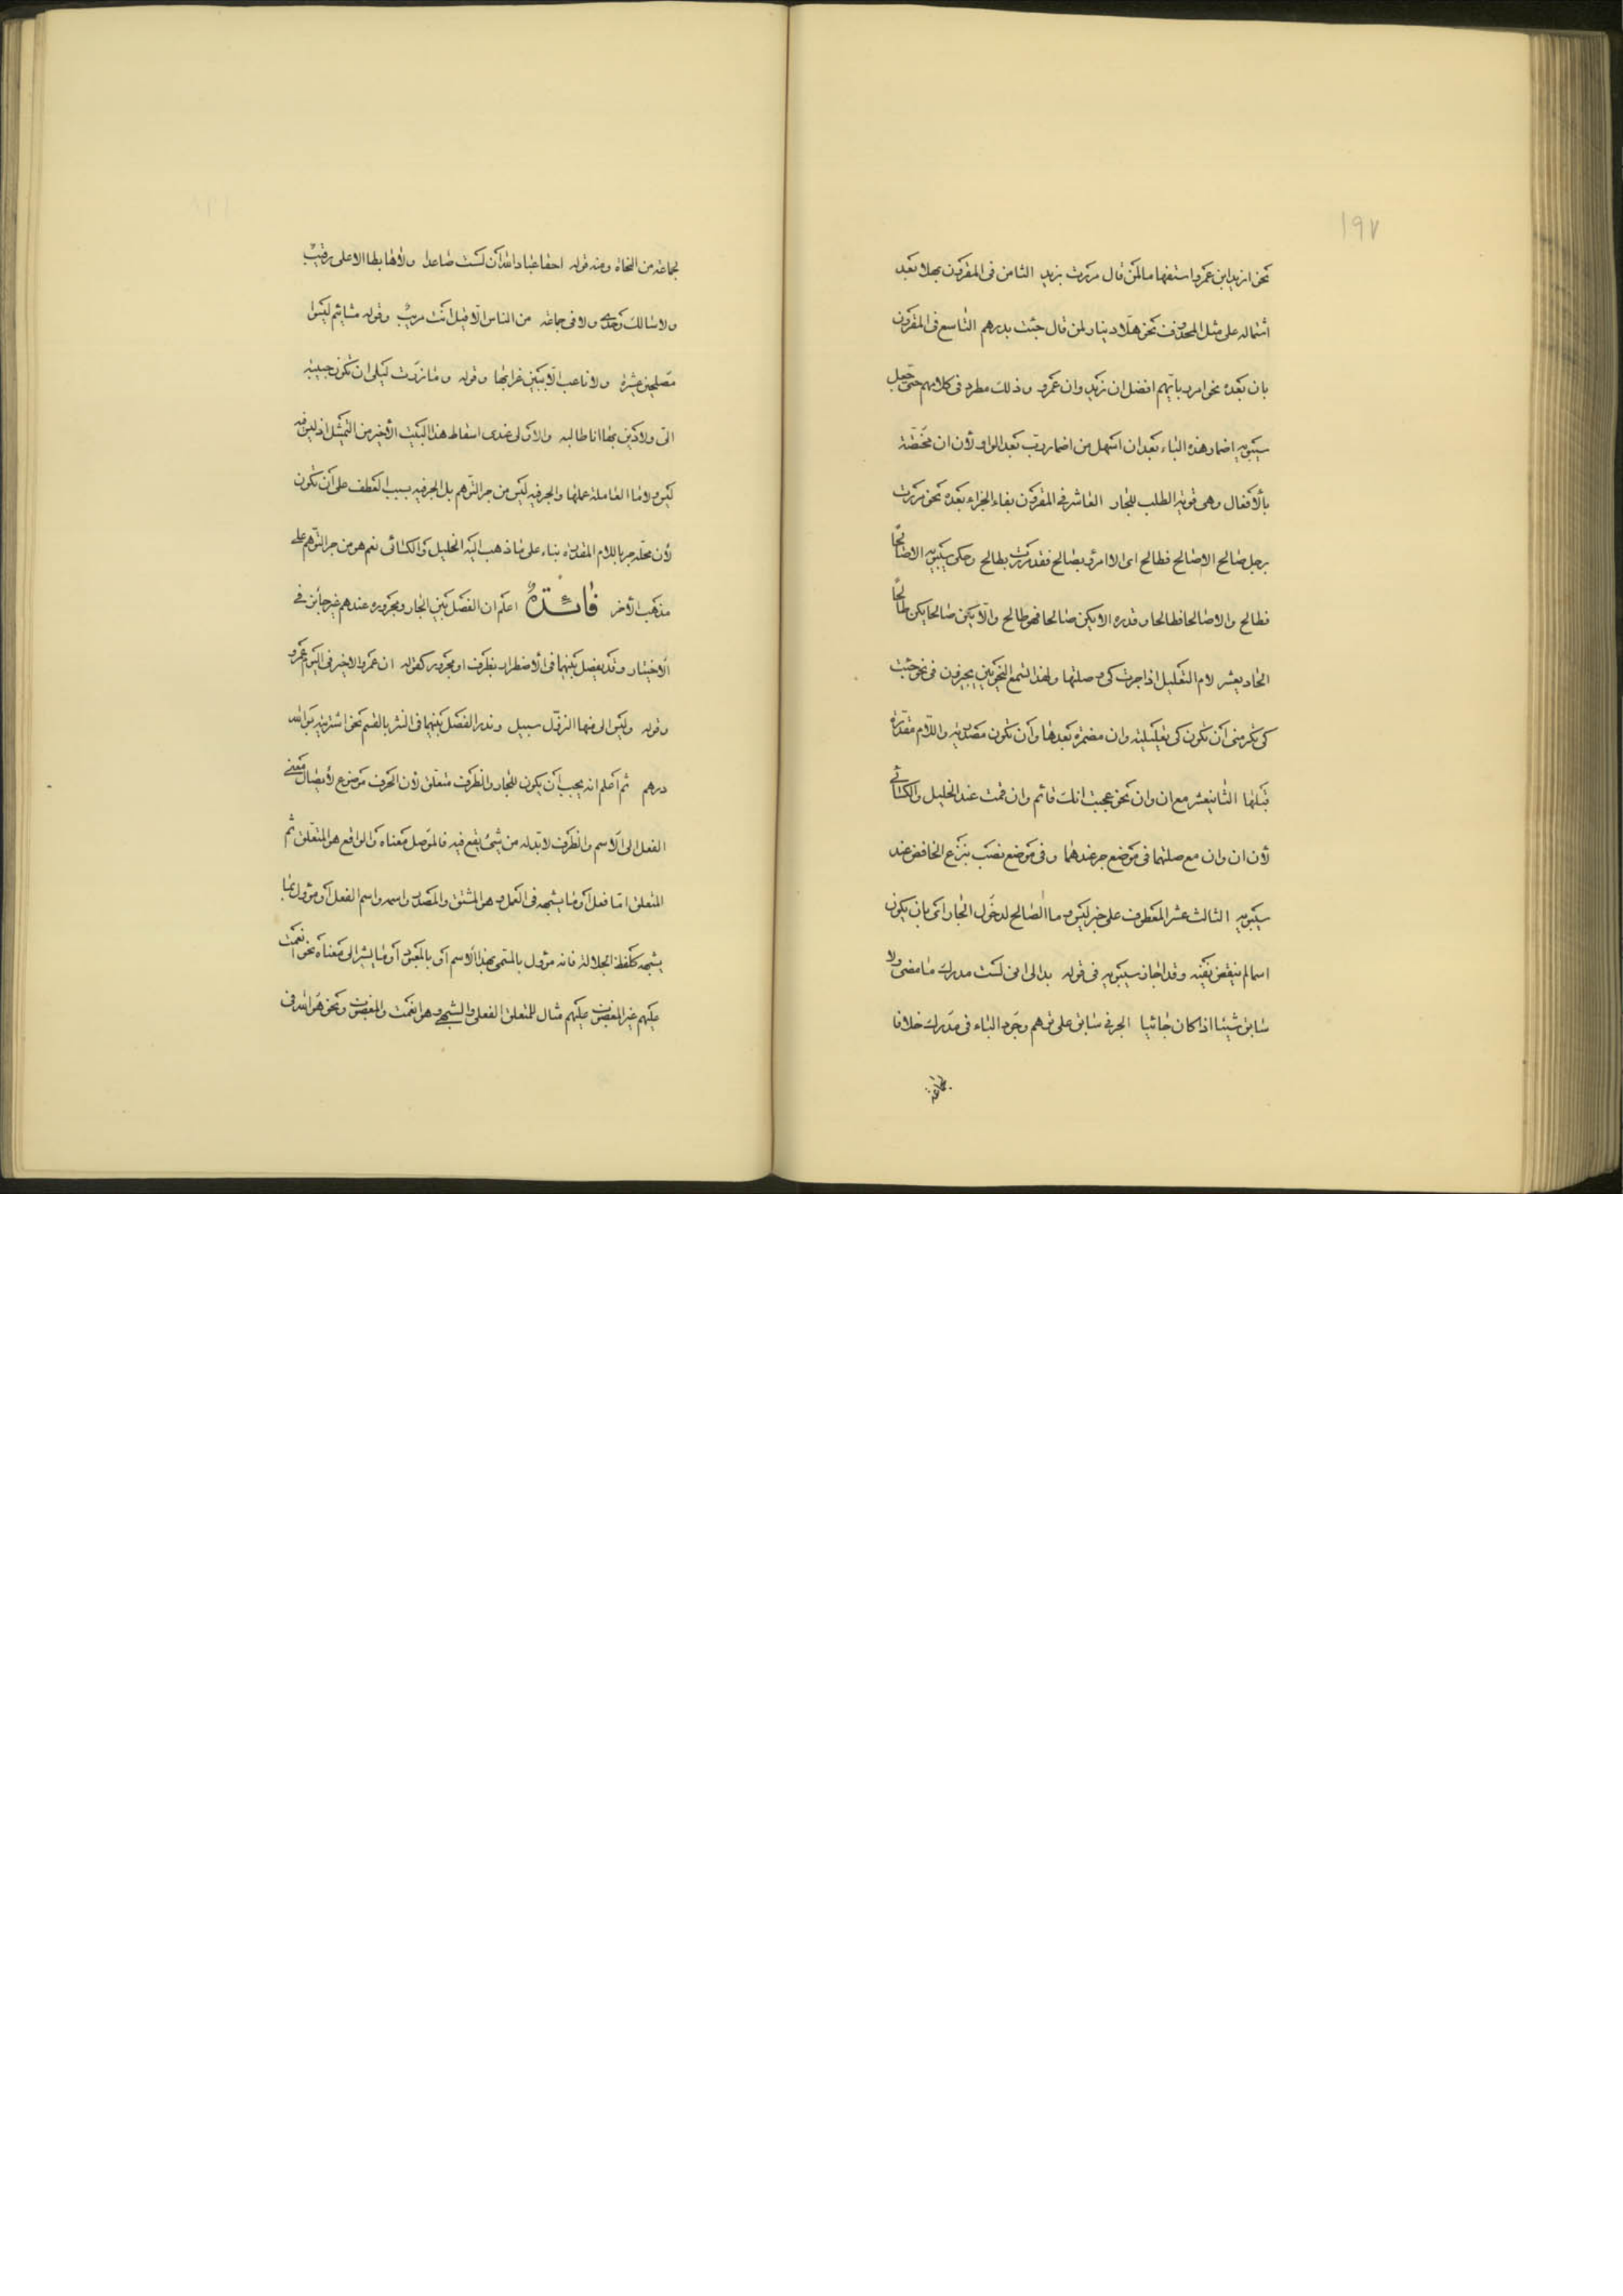 ١٩٧
نحو ازيد ابن عمرو استفهاما لمن قال مررت بزيد الثامن فى المقرون بهلا بعد
اشتماله على مثل المحذوف نحو هلا دينار لمن قال جئت بدرهم التاسع فى المقرون
بان بعده نحو امرر بايهم افضل ان زيد وان عمرو وذلك مطرد فى كلامهم حتى جعل
سيبويه اضمار هذه الباء بعد ان اسهل من اضمار رب بعد الواو لأن ان مختصة
بالأفعال وهى قوية الطلب للجار العاشر فى المقرون بفاء الجزاء بعده نحو مررت
برجل صالح الا صالح فطالح اى الا امرر بصالح فقد مررت بطالح وحكى سيبويه الا صالحًا
فطالح والا صالحا فطالحا وقدره الا يكن صالحا فهو طالح والا يكن صالحا يكن طالحًا
الحاديعشر لام التعليل اذا جرت كى وصلتها ولهذا تسمع النحويين يجيزون فى نحو جئت
كى تكرمنى أن تكون كى تعليلية وان مضمرة بعدها وأن تكون مصدرية واللام مقدرة
قبلها الثانيعشر مع ان وان نحو عجبت انك قائم وان قمت عند الخليل والكسائى
لأن ان وان مع صلتهما فى موضع جر عندهما وفى موضع نصب بنزع الخافض عند
سيبويه الثالث عشر المعطوف على خبر ليس وما الصالح لدخول الجار اى بان يكون
اسما لم ينقض نفيه وقد اجاز سيبويه فى قوله بدا لى انى لست مدرك ما مضى ولا
سابق شيئا اذا كان جائيا الجر فى سابق على توهم وجود الباء فى مدرك خلافا
لجماعة
لجماعة من النحاة ومنه قوله احقا عباد الله أن لست صاعدا ولا هابطا الا على رقيبٌ
ولا سالك وحدى ولا فى جماعة من الناس الا قيل انت مريبٌ وقوله مشائيم ليسوا
مصلحين عشيرة ولا ناعب الا ببين غرابها وقوله وما زرت ليلى ان تكون حبيبة
الى ولا دين بها انا طالبه والاولى عندى اسقاط هذا البيت الأخير من التمثيل اذ ليس فيه
ليس ولا ما العاملة عملها والجر فيه ليس من جر التوهم بل الجر فيه بسبب العطف على أن تكون
لأن محله جر باللام المقدرة بناء على ما ذهب اليه الخليل والكسائى نعم هو من جر التوهم على
مذهب الأخر فائدةٌ اعلم ان الفصل بين الجار ومجروره عندهم غير جائز فى
الاختيار وقد يفصل بينهما فى الأضطرار بظرف او مجرور كقوله ان عمرا لا خير فى اليوم عمرو
وقوله وليس الى منها النزول سبيل وندر الفصل بينهما فى النثر بالقسم نحو اشتريته بوالله
درهم ثم أعلم انه يجب أن يكون للجار والظرف متعلق لأن الحرف موضوع لأيصال معنى
الفعل الى الاسم والظرف لا بد له من شئ يقع فيه فالموصل معناه والواقع هو المتعلق ثم
المتعلق اما فعل أو ما يشبهه فى العمل وهو المشتق والمصدر واسمه واسم الفعل أو مؤول بما
يشبهه كلفظ الجلالة فانه مؤول بالمسمى بهذا الاسم أو بالمعبود أو ما يشير الى معناه نحو انعمت
عليهم غير المغضوب عليهم مثال للمتعلق الفعلى والشبهى وهو انعمت والمغضوب ونحو هو الله فى